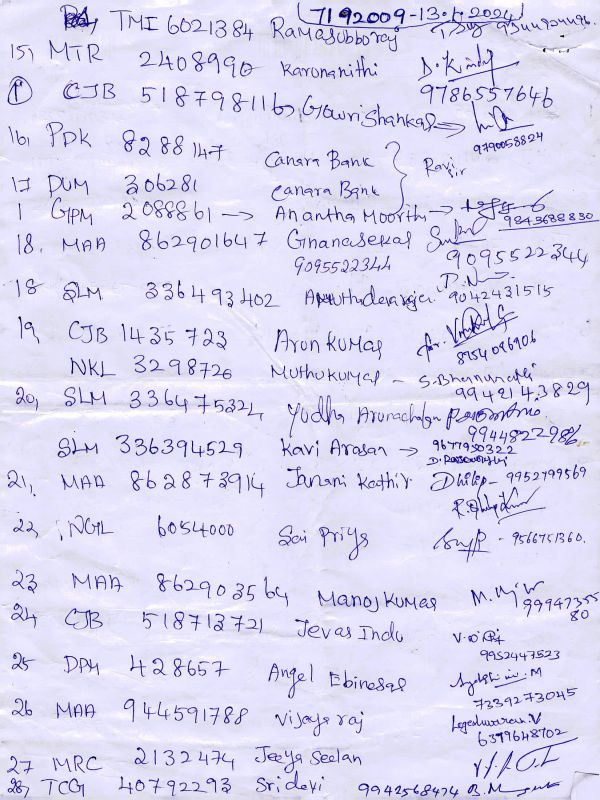 7192009-13.1.2024
TMI 6021384 Ramasubboraj
15, MTR 2408990 Karunanithi
9786557646
1 CJB 518798116 Gowrishankar
9790058824
16, PDK 8288147 Canara Bank Ravi sir
17 DUM 306281 Canara Bank
1 GPM 2088861 → Anantha Moorthi →
9843688830
18. MAA 862901647 Gnanasekar
9095522344 9095522344
18 SLM 336493402
9042431515
19, CJB 1435723 Arun Kumar for.
8754096906
NKL 3298726 Muthukumar -
9942143829
20, SLM Yudha Arunachalam
9944822986
SLM 336394529 Kavi Arasan → 9677950322
21, MAA 862873914 Janani Kathir Dhilip - 9952799569
22, NGL 6054000 Sai Priya - 9566751360.
23 MAA 862903564 Manoj Kumar
9994735580
24 CJB 518713721 Jevas Indu
9952447523
25 DPM 428657 Angel Ebinesar
7339273045
26 MAA 944591788 Vijaya raj Logeshwaran.V
6379648702
27 MRC 2132474 Jeeya Seelan
28, TCG 40792293 Sri devi 9942568474